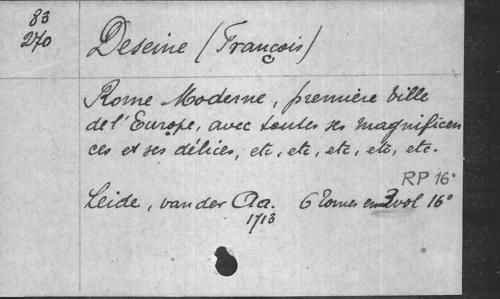 83
270
Deseine (François)
Rome Moderne, première Ville
de l'Europe, avec toutes ses magnificen
ces et ses délices, etc, etc, etc, etc, etc.
RP 16°
Leide, vander Aa. 6 Tomes en 3 vol 16°
1713